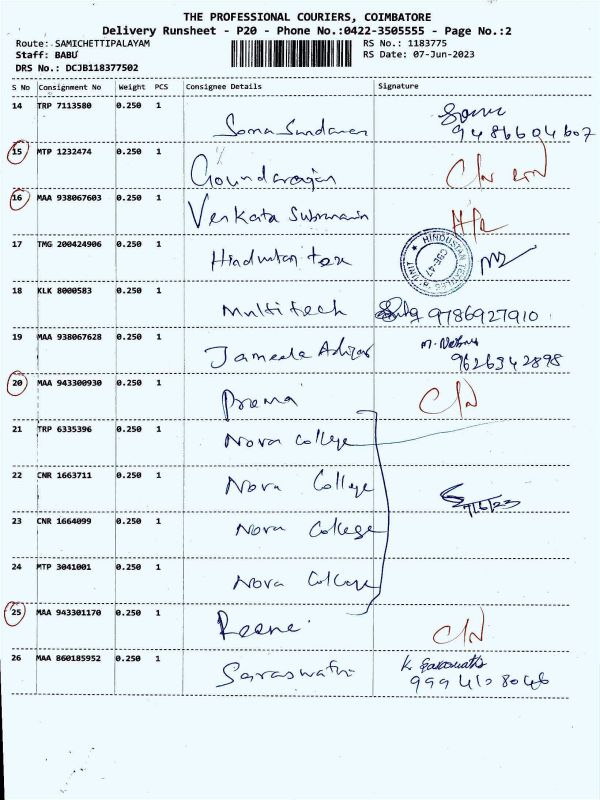 THE PROFESSIONAL COURIERS, COIMBATORE
Delivery Runsheet - P20 - Phone No.:0422-3505555 - Page No.:2
Route: SAMICHETTIPALAYAM RS No.: 1183775
Staff: BABU RS Date: 07-Jun-2023
DRS No.: DCJB118377502
S No Consignment No Weight PCS Consignee Details Signature
14 TRP 7113580 0.250 1
Soma Sundaram 9486604607
15 MTP 1232474 0.250 1
Goundarajan C/N
16 MAA 938067603 0.250 1
Venkata Subramanian
17 TMG 200424906 0.250 1 HINDUSTAN
Hindustan tex CBE-47
18 KLK 8000583 0.250 1
Multitech 9786927910
19 MAA 938067628 0.250 1
Jameela 9626342898
20 MAA 943300930 0.250 1
Prema C/N
21 TRP 6335396 0.250 1
Nova College
22 CNR 1663711 0.250 1
Nova College 7/6/23
23 CNR 1664099 0.250 1
Nova College
24 MTP 3041001 0.250 1
Nova College
25 MAA 943301170 0.250 1
Reene C/N
26 MAA 860185952 0.250 1 K.
Saraswathi